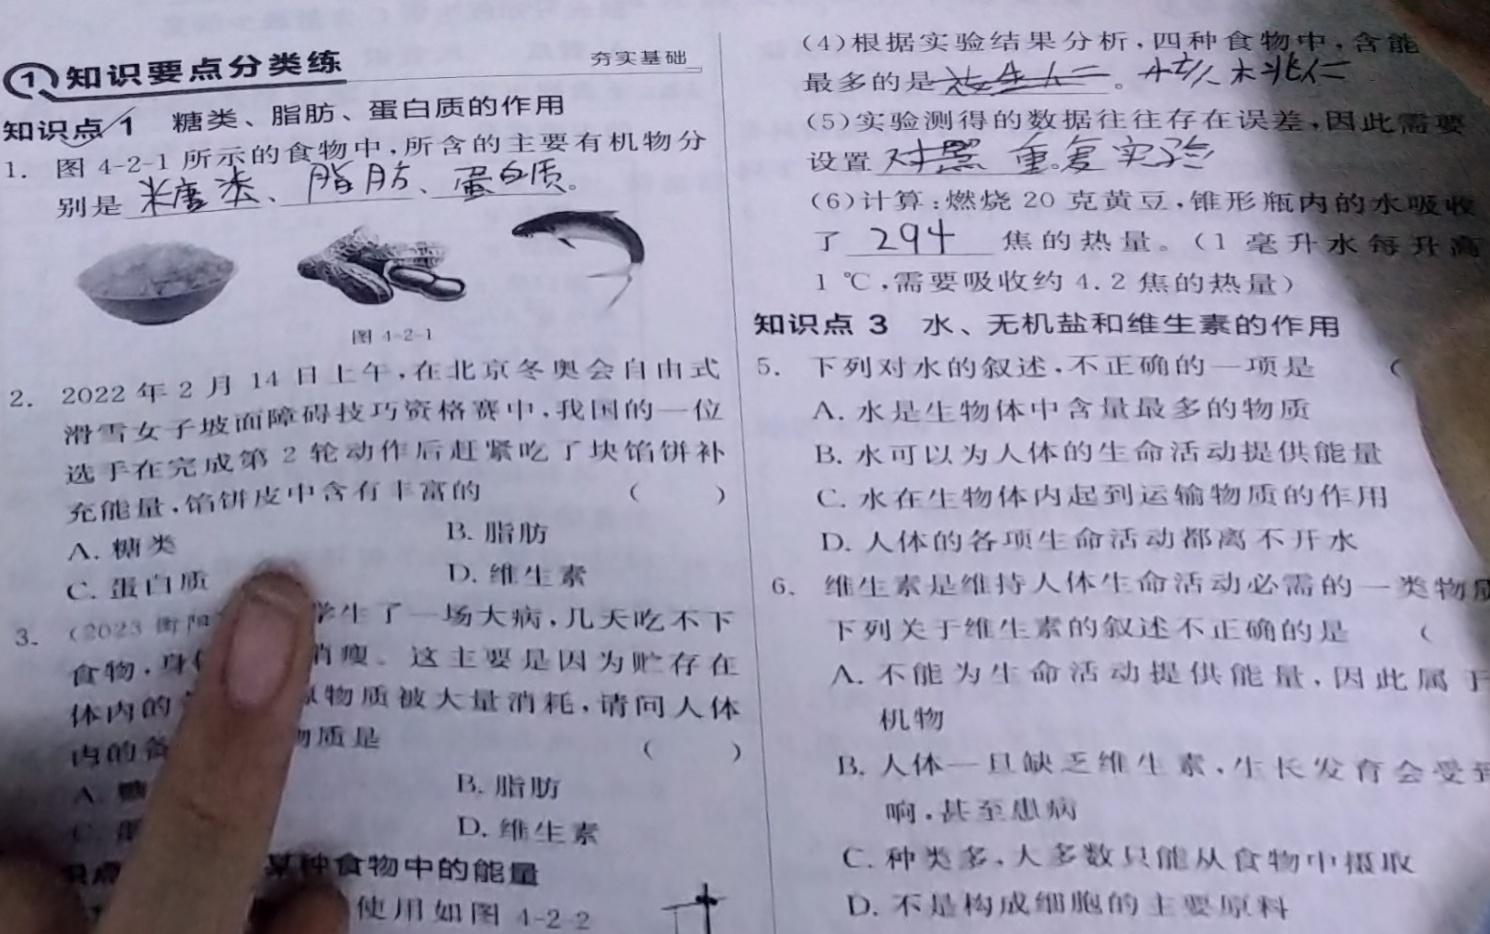 1 知识要点分类练 夯实基础
知识点 1 糖类、脂肪、蛋白质的作用
1. 图 4-2-1 所示的食物中,所含的主要有机物分
别是 糖类、脂肪、蛋白质。
图 4-2-1
2. 2022 年 2 月 14 日上午,在北京冬奥会自由式
滑雪女子坡面障碍技巧资格赛中,我国的一位
选手在完成第 2 轮动作后赶紧吃了块馅饼补
充能量,馅饼皮中含有丰富的 ( )
A. 糖类 B. 脂肪
C. 蛋白质 D. 维生素
3. (2023 衡阳 学生了一场大病,几天吃不下
食物,身 消瘦。这主要是因为贮存在
体内的 物质被大量消耗,请问人体
内的备 物质是 ( )
A. 糖 B. 脂肪
C. 蛋 D. 维生素
识点 某种食物中的能量
使用如图 4-2-2
(4)根据实验结果分析,四种食物中,含能
最多的是 。 核桃仁
(5)实验测得的数据往往存在误差,因此需要
设置 对照 重复实验
(6)计算:燃烧 20 克黄豆,锥形瓶内的水吸收
了 294 焦的热量。(1 毫升水每升高
1 ℃,需要吸收约 4.2 焦的热量)
知识点 3 水、无机盐和维生素的作用
5. 下列对水的叙述,不正确的一项是 (
A. 水是生物体中含量最多的物质
B. 水可以为人体的生命活动提供能量
C. 水在生物体内起到运输物质的作用
D. 人体的各项生命活动都离不开水
6. 维生素是维持人体生命活动必需的一类物质
下列关于维生素的叙述不正确的是 (
A. 不能为生命活动提供能量,因此属于
机物
B. 人体一旦缺乏维生素,生长发育会受到
响,甚至患病
C. 种类多,大多数只能从食物中摄取
D. 不是构成细胞的主要原料